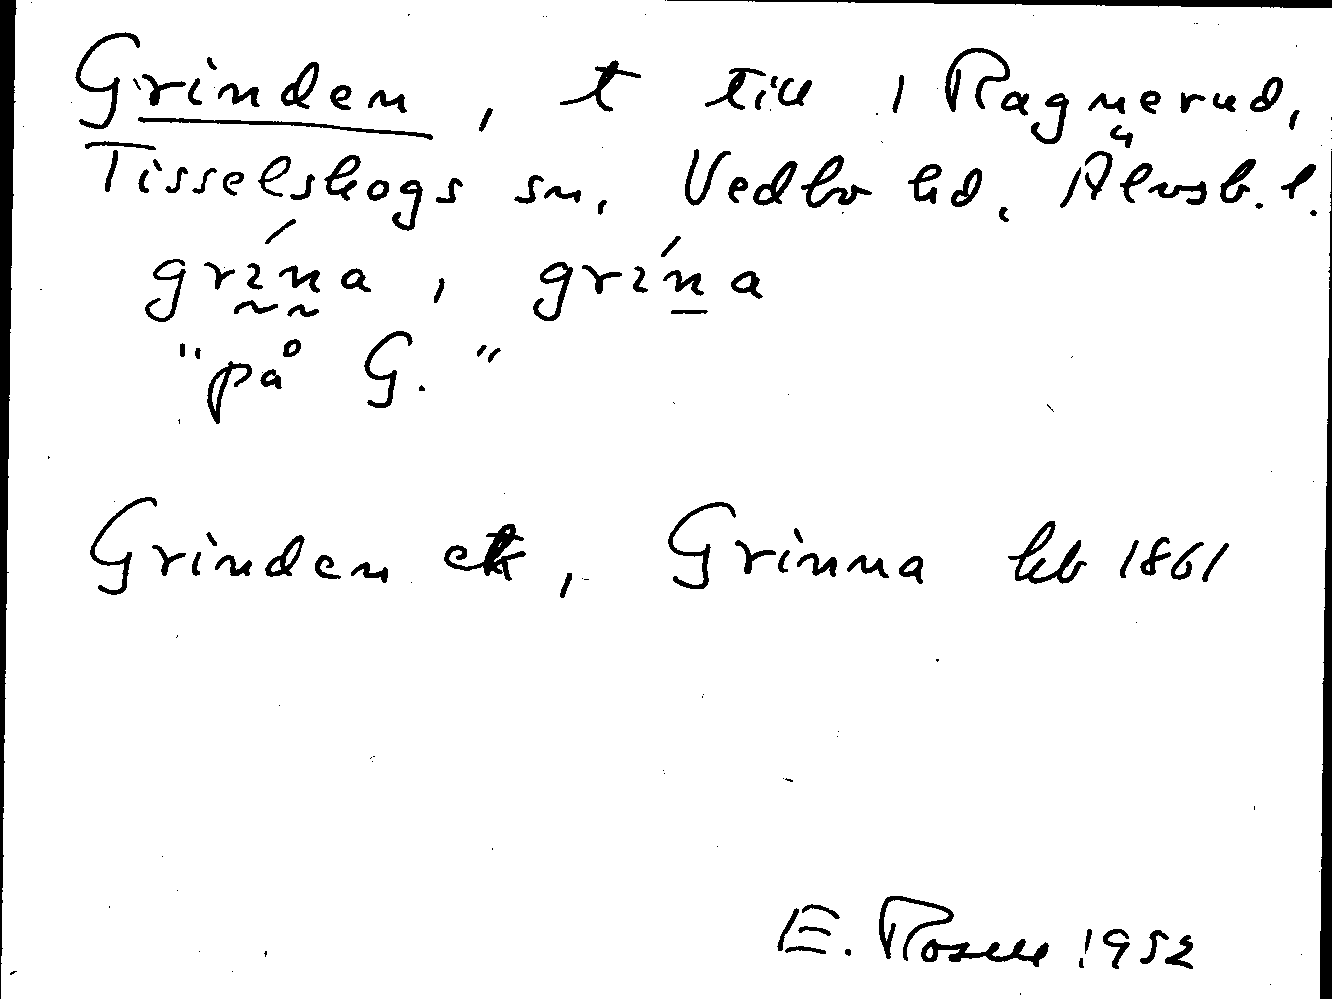 Grinden, t till 1 Ragnerud,
Tisselskogs sn, Vedbo hd. Älvsb. l.
grína, grína
"på G."
Grinden ek, Grinna hb 1861
E. Rosell 1952